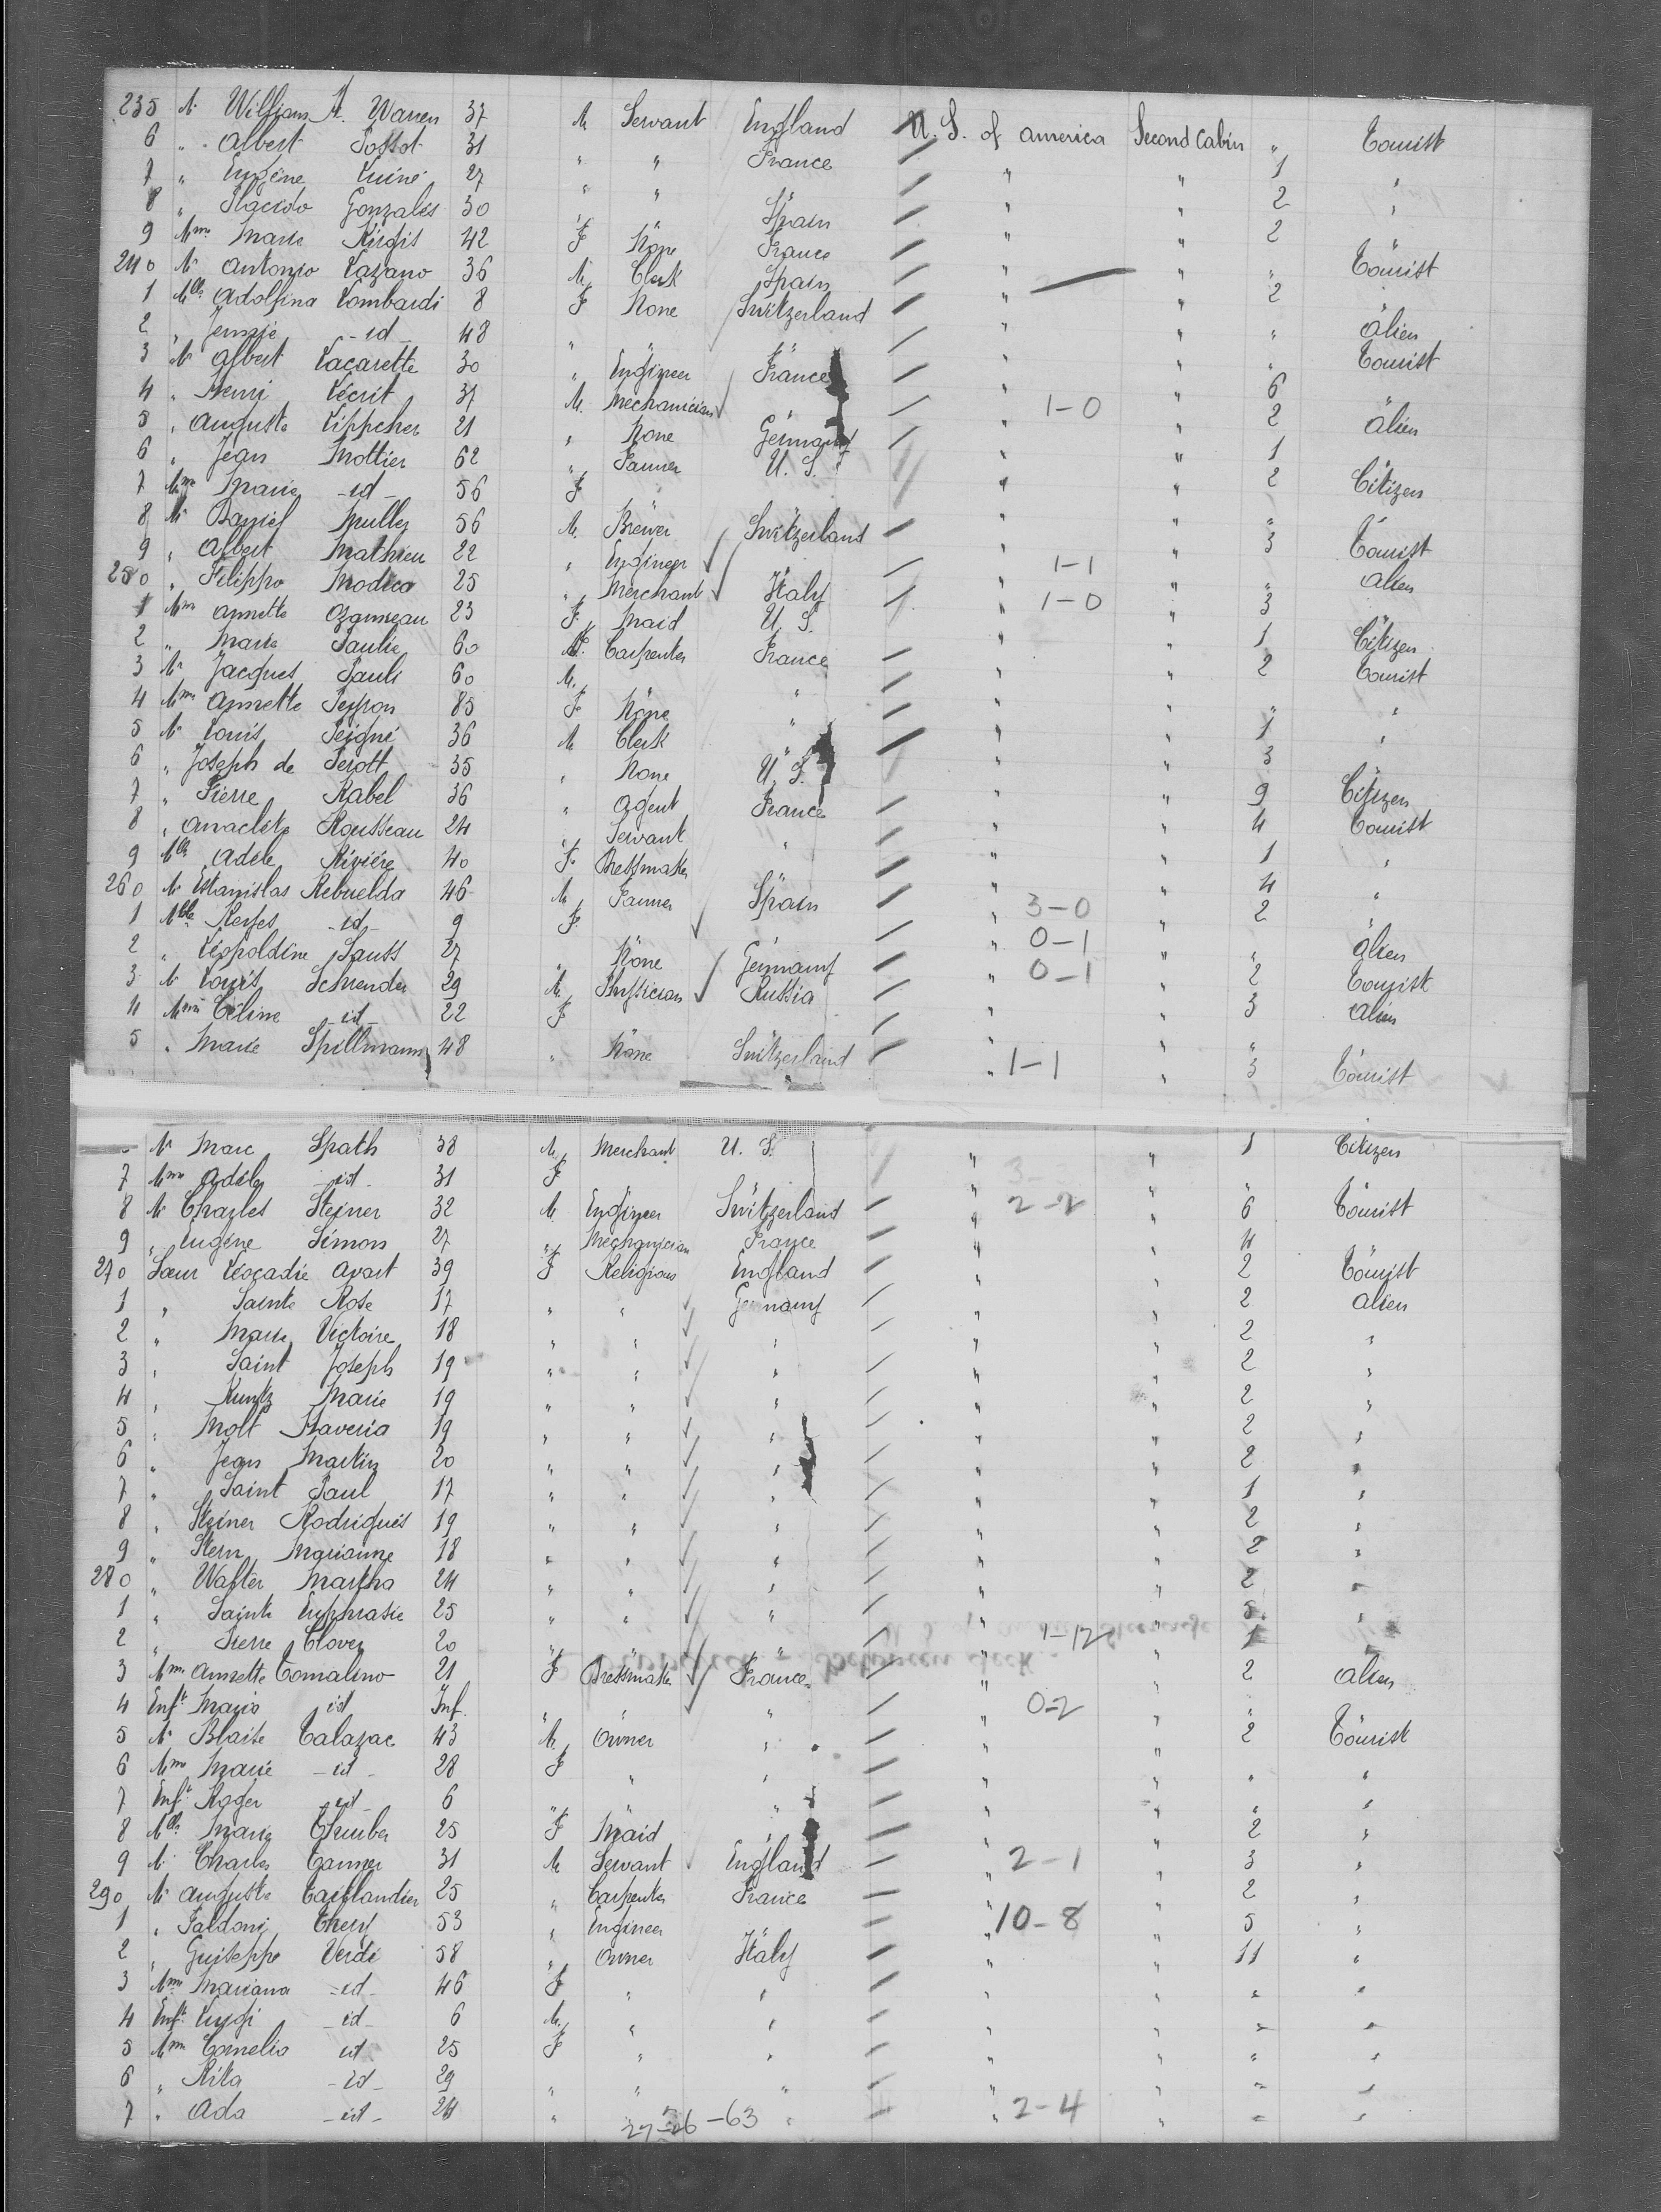 235 Mr William H. Warren 37 M. Servant England U. S. of America Second Cabin " Tourist
6 " Albert 31 " " France " " 1 "
7 " Eugène 27 " " " " " 2 "
8 " Placido Gonzalès 30 " " Spain " " 2
9 Mme Marie 42 F None France " " "
240 Mr Antonio Lazano 36 M. Clerk Spain " " 2 Tourist
1 Mlle Adolfina Lombardi 8 F None Switzerland " "
2 " -id- 48 " " " " " Alien
3 Mr Albert Lacarette 30 " Engineer France " " 6 Tourist
4 " Henri Lécrit 37 M. Mechanician " 1-0 " 2 Alien
5 " Auguste Lippcher 21 " None Germany " " 1
6 " Jean Mottier 62 " Farmer U. S. " " 2 Citizen
7 Mme Marie -id- 56 F " " "
8 Mr Daniel Muller 56 M. Brewer Switzerland " " 3 Tourist
9 " Albert Mathieu 22 " Engineer " 1-1 " " Alien
250 " Filippo Modica 25 " Merchant Italy " 1-0 " 3
1 Mme Annette Ozanneau 23 F. Maid U. S. " " 1 Citizen
2 " Marie Paulie 60 Carpenter France " " 2 Tourist
3 Mr Jacques Pauli 60 M. " " " "
4 Mme Annette Peyron 85 F None " " " 1 "
5 Mr Louis Peigné 36 M Clerk " " 3
6 " Joseph de Perott 35 " None U. S. " " 9 Citizen
7 " Pierre Rabel 36 " Agent France " " 4 Tourist
8 " Anaclète Rousseau 24 " Servant " " " 1 "
9 Mlle Adèle Rivière 40 F. Dressmaker " " 4 "
260 Mr Estanislas Rebuelda 46 M Farmer Spain " 3-0 " 2
1 Mlle -id- 9 F " 0-1 " " Alien
2 " Léopoldine 27 " None Germany " 0-1 " 2 Tourist
3 Mr Louis 29 M. Physician Russia " " 3 Alien
4 Mme Céline -id- 22 F " " "
5 " Marie Spillmann 48 " None Switzerland " 1-1 " 3 Tourist
Mr Marc Spath 38 M. Merchant U. S. " " 1 Citizen
7 Mme Adèle -id- 31 F " 3 " "
8 Mr Charles Steiner 32 M. Engineer Switzerland " 2-2 " 6 Tourist
9 " Eugène Simon 27 " Mechanician France " " 4
270 Sœur Léocadie Avart 39 F Religious England " " 2 Tourist
1 " Sainte Rose 17 " " Germany " " 2 Alien
2 " Marie Victoire 18 " " " " " 2 "
3 " Saint Joseph 19 " " " " " 2 "
4 " Kuntz Marie 19 " " " " " 2 "
5 " Molt Xaveria 19 " " " " " 2 "
6 " Jean Martin 20 " " " " " 2 "
7 " Saint Paul 17 " " " " " 1 "
8 " Steiner Rodrigués 19 " " " " " 2 "
9 " Stern Marianne 18 " " " " " 2 "
280 " Walter Martha 24 " " " " " 2 "
1 " Sainte Euphrasie 25 " " " " " 5 "
2 " Pierre Claver 20 " " " " 1-12 " 1 "
3 Mme Annette Tomalino 21 F Dressmaker France " " 2 Alien
4 Enft Mario id Inf. " " " " 0-2 " "
5 Mr Blaise Talazac 43 M. Owner " " " 2 Tourist
6 Mme Marie -id- 28 F " " " " " "
7 Enft Roger -id- 6 " " " " " "
8 Mlle Marie 25 F Maid " " " 2 "
9 Mr Charles Tanner 31 M Servant England " 2-1 " 3 "
290 Mr Auguste Taillandier 25 " Carpenter France " " 2 "
1 " Thery 53 " Engineer " 10-8 " 5 "
2 " Guiseppe Verdi 58 " Owner Italy " " 11 "
3 Mme Mariana -id- 46 F " " " " " "
4 Enft Luigi -id- 6 M. " " " " " "
5 Mme Cornelia id 25 F " " " " " "
6 " Rita -id- 29 " " " " " " "
7 " Ada -id- 24 " " " 2-4 " " "
27-26-63